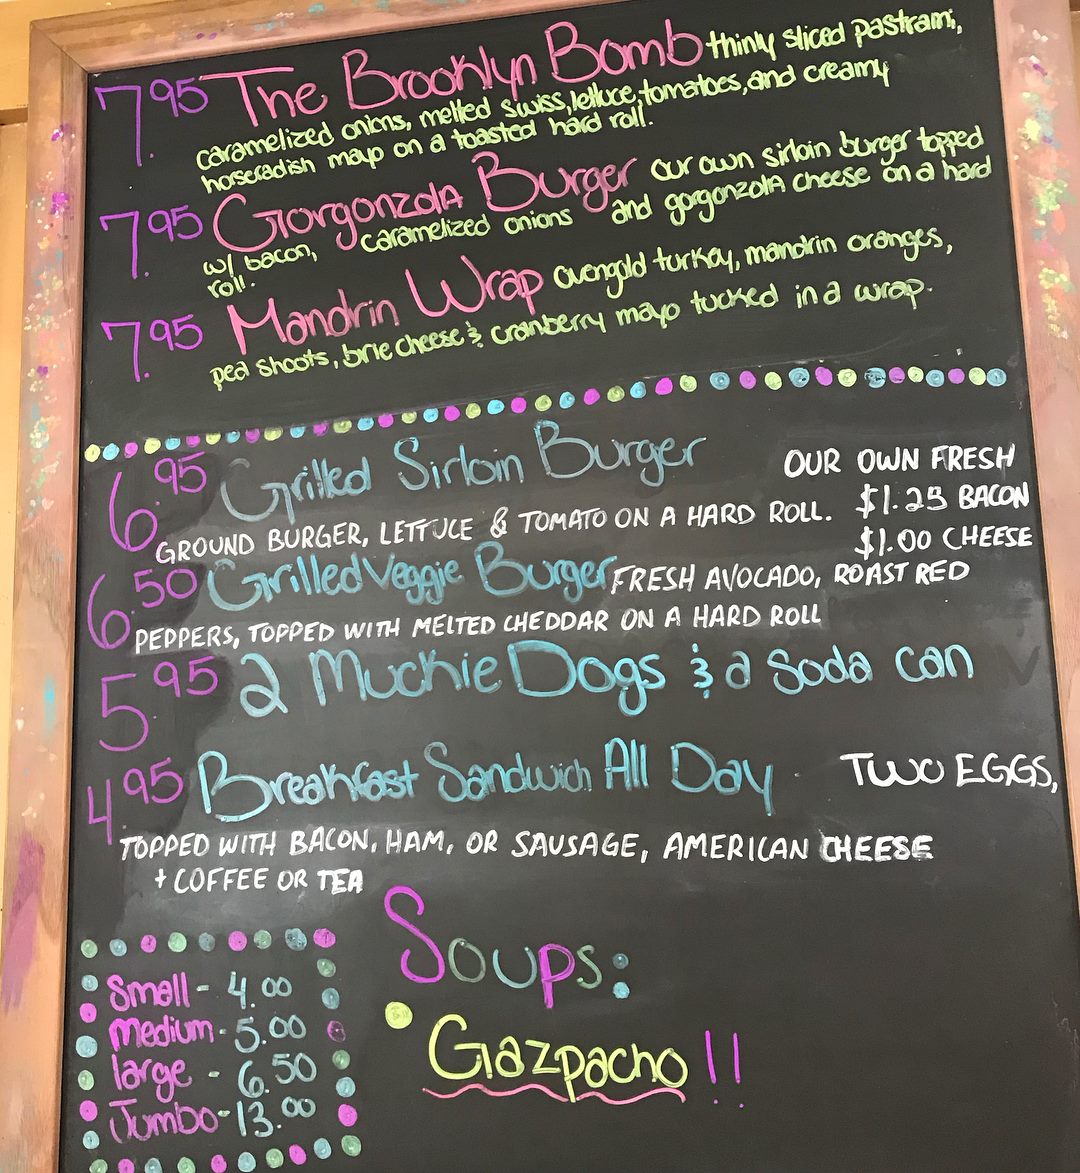 7.95 The Brooklyn Bomb thinly sliced pastrami,
caramelized onions, melted swiss, lettuce, tomatoes, and creamy
horseradish mayo on a toasted hard roll.
7.95 Gorgonzola Burger our own sirloin burger topped
w/ bacon, caramelized onions and gorgonzola cheese on a hard
roll.
7.95 Mandrin Wrap ovengold turkey, mandrin oranges,
pea shoots, brie cheese & cranberry mayo tucked in a wrap.
6.95 Grilled Sirloin Burger OUR OWN FRESH
GROUND BURGER, LETTUCE & TOMATO ON A HARD ROLL. $1.25 BACON
$1.00 CHEESE
6.50 Grilled Veggie Burger FRESH AVOCADO, ROAST RED
PEPPERS, TOPPED WITH MELTED CHEDDAR ON A HARD ROLL
5.95 2 Muckie Dogs & a Soda Can
4.95 Breakfast Sandwich All Day TWO EGGS,
TOPPED WITH BACON, HAM, OR SAUSAGE, AMERICAN CHEESE
+ COFFEE OR TEA
Soups:
Gazpacho!!
Small - 4.00
Medium - 5.00
large - 6.50
Jumbo - 13.00